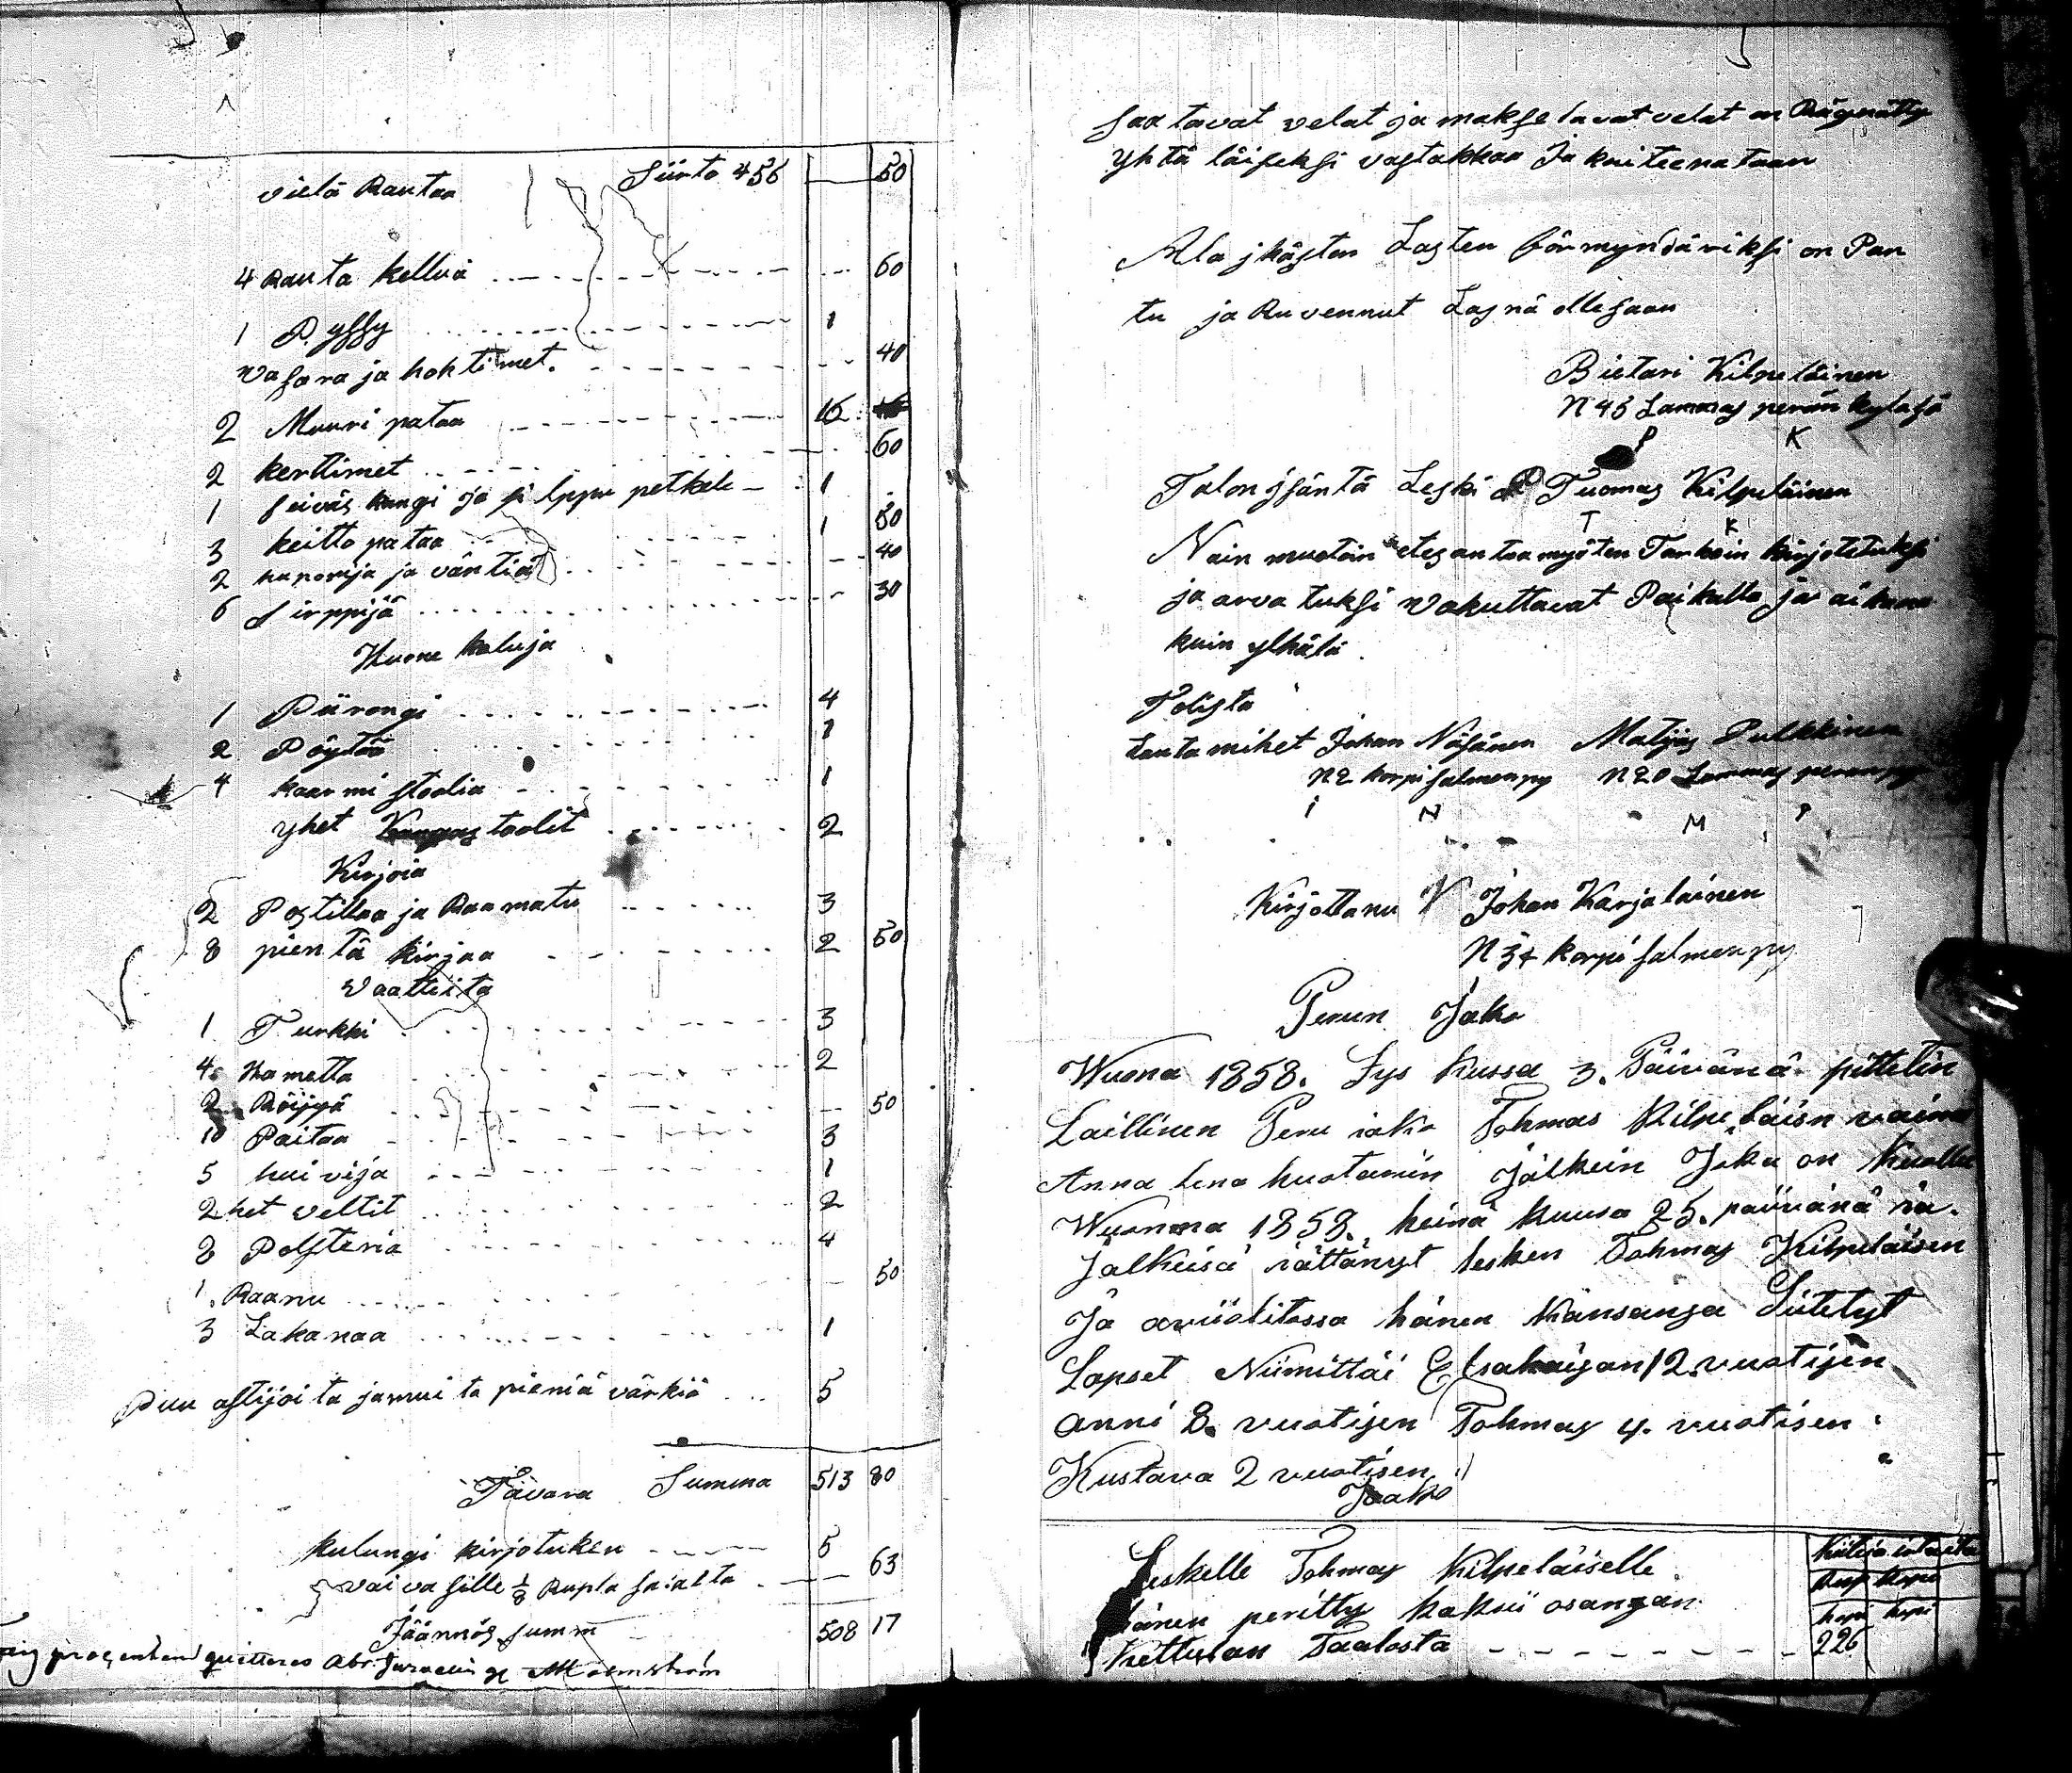 vielä Rautaa Siirto 456 50
4 Rauta kelluä 60
1 Pyssy 1
Vasara ja hohtimet. 40
2 Muuri pataa 16
2 kerttimet 60
1 seiväs kangi ja silppu petkele 1
3 keitto pataa 1 50
2 haporija ja väntiä 40
6 sirppijä 30
Huone kaluja
1 Piirongi 4
2 Pöytää 1
4 kaarmi stoolia 1
yhet Kangas toolit 2
Kirjoia
2 Postillaa ja Raamatu 3
8 pientä kirjaa 2 50
Vaatteita
1 Turkki 3
4 Hametta 2
2 Röijyä 50
10 Paitaa 3
5 huivija 1
2het veltit 2
8 Polsteria 4
1. Raanu 50
3 Lakanaa 1
Puu astijoita ja muita pieniä värkiä 5
Tavara Summa 513 80
kulungi kirjotuken 5
vaivasille 1/8 Rupla sadalta 63
Jäännös summ 508 17
procenten quitteras Abr:
Saatavat velat ja maksetavat velat on Rägnätty
yhtä läiseksi vastakkaa Ja kuiteerataan
Ala jkästen Lasten förmyndäriksi on Pan
tu ja Ruvennut Lasnä ollesaan
Bietari Kilpeläinen
N 45 Lammas perän kyläsä
P K
Talon jsäntä Leski Tuomas Kilpeläinen
T K
Näin muotoin etesantoa myöten Tarkoin kirjotetuksi
ja arvatuksi Vakuttavat Paikalla ja aikana
kuin ylhälä
Tolista
Lauta mihet Johan Näsänen Matjas Pulkkinen
N2 korpi salmen py N20 Lammas perän py
i N M P
Kirjottanu V Johan Karjalainen
N 34 korpi salmen py
Perun Jako
Wuona 1858. Sys kussa 3. Päivänä pittetin
Laillinen Peru iako Tohmas Kilpeläisn vaimo
Anna lena huotarin Jälkein Joka on Kuollu
Wuonna 1858. heinä kuusa 25. päivänä ia.
Jalkeisä iättänyt lesken Tohmas Kilpeläisen
Ja aviiolitossa hänen Kansansa Siitetyt
Lapset Niimittäi Elsakaijsan 12 vuotisen
Anni 8. vuotisen Tohmas 4. vuotisen
Kustava 2 vuotisen
Jaako
Leskelle Tohmas Kilpeläiselle
hänen peritty kaksii osangan
Kettulan Taalosta 226